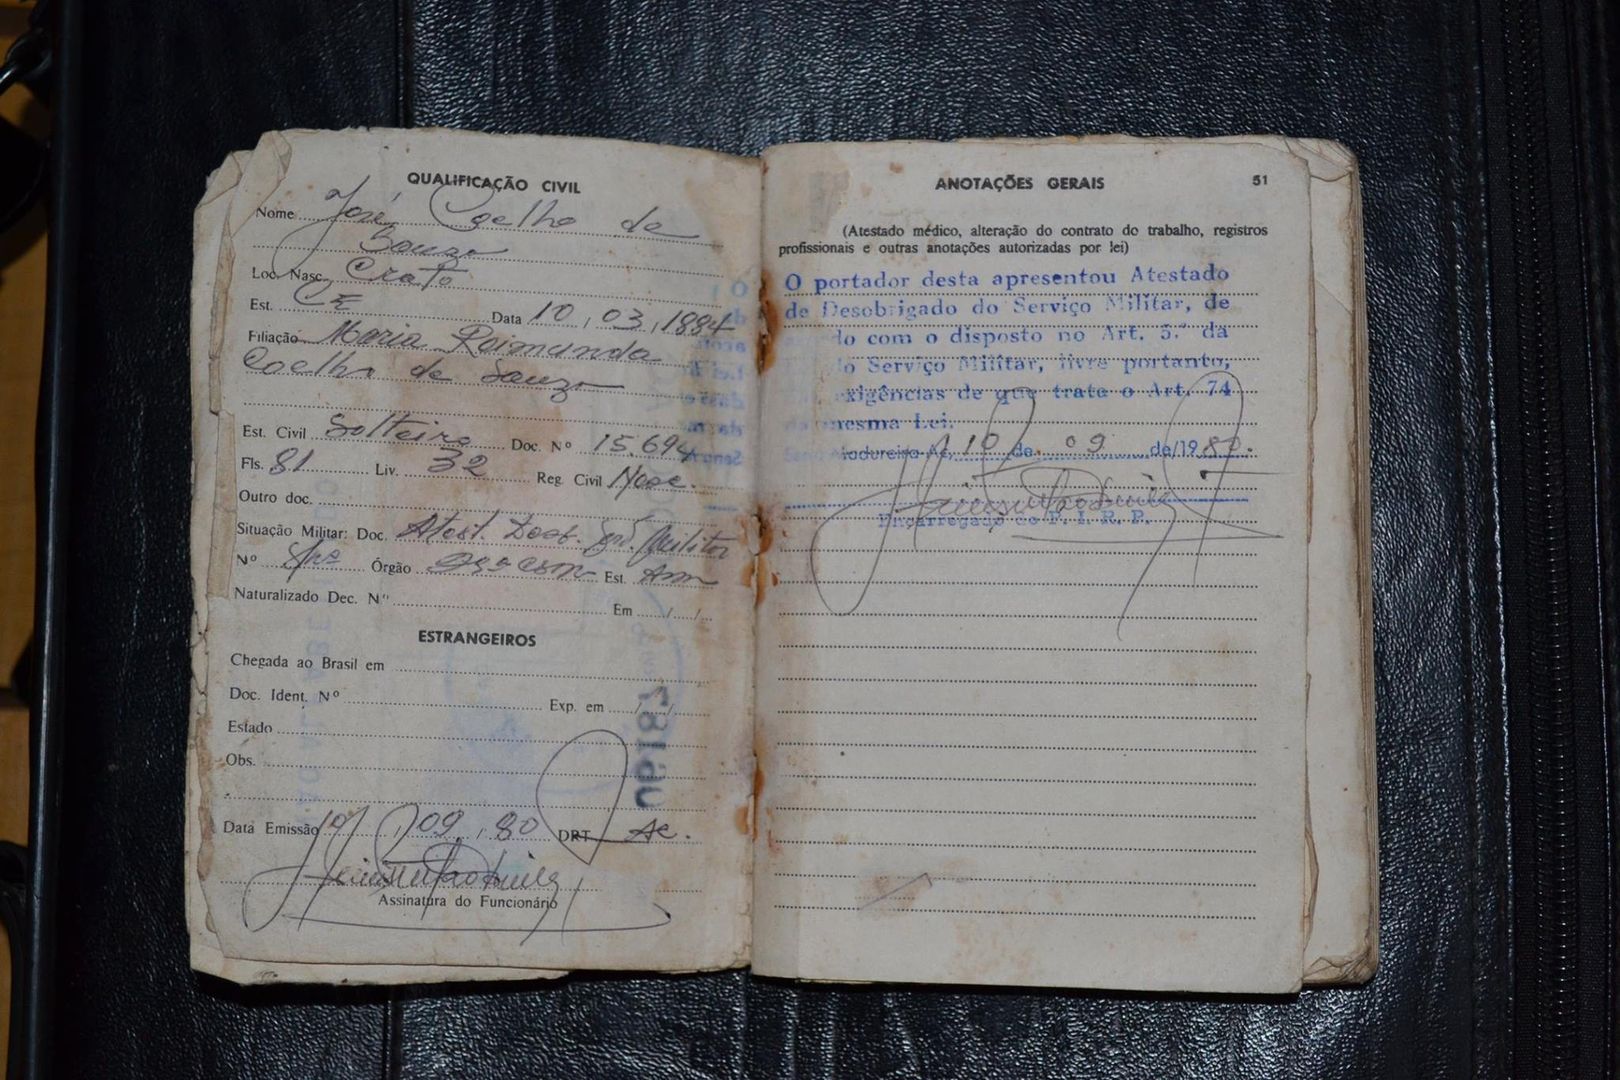 QUALIFICAÇÃO CIVIL
Nome José Coelho de
Souza
Loc. Nasc. Crato
Est. CE Data 10, 03, 1884
Filiação Maria Raimunda
Coelho de Souza
Est. Civil Solteiro Doc. Nº 15.694
Fls. 81 Liv. 32 Reg. Civil Nasc.
Outro doc.
Situação Militar: Doc. Atest. Desob. Militar
Nº Órgão Est. Am
Naturalizado Dec. Nº Em / /
ESTRANGEIROS
Chegada ao Brasil em
Doc. Ident. Nº Exp. em / /
Estado
Obs.
Data Emissão 10, 09, 80 DRT Ac.
Assinatura do Funcionário
ANOTAÇÕES GERAIS 51
(Atestado médico, alteração do contrato do trabalho, registros
profissionais e outras anotações autorizadas por lei)
O portador desta apresentou Atestado
de Desobrigado do Serviço Militar, de
do com o disposto no Art. 5.º da
do Serviço Militar, livre portanto,
exigências de que trata o Art. 74
da mesma Lei.
Madureira Ac. 10 de 09 de/1980.
Encarregado do P. I. R. P.